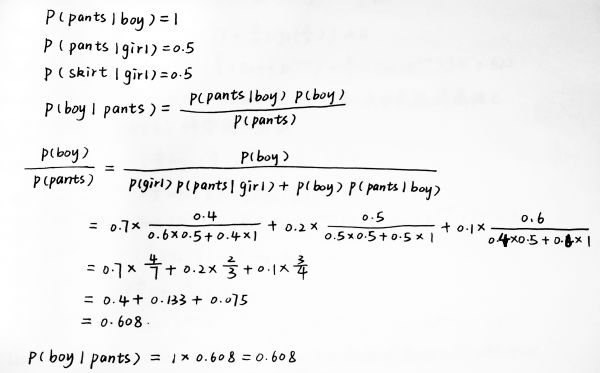 P(pants|boy)=1
P(pants|girl)=0.5
P(skirt|girl)=0.5
P(boy|pants) = P(pants|boy) P(boy) / P(pants)
P(boy) / P(pants) = P(boy) / P(girl) P(pants|girl) + P(boy) P(pants|boy)
= 0.7 × 0.4 / 0.6×0.5+0.4×1 + 0.2 × 0.5 / 0.5×0.5+0.5×1 + 0.1 × 0.6 / 0.4×0.5+0.6×1
= 0.7 × 4/7 + 0.2 × 2/3 + 0.1 × 3/4
= 0.4 + 0.133 + 0.075
= 0.608.
P(boy|pants) = 1 × 0.608 = 0.608